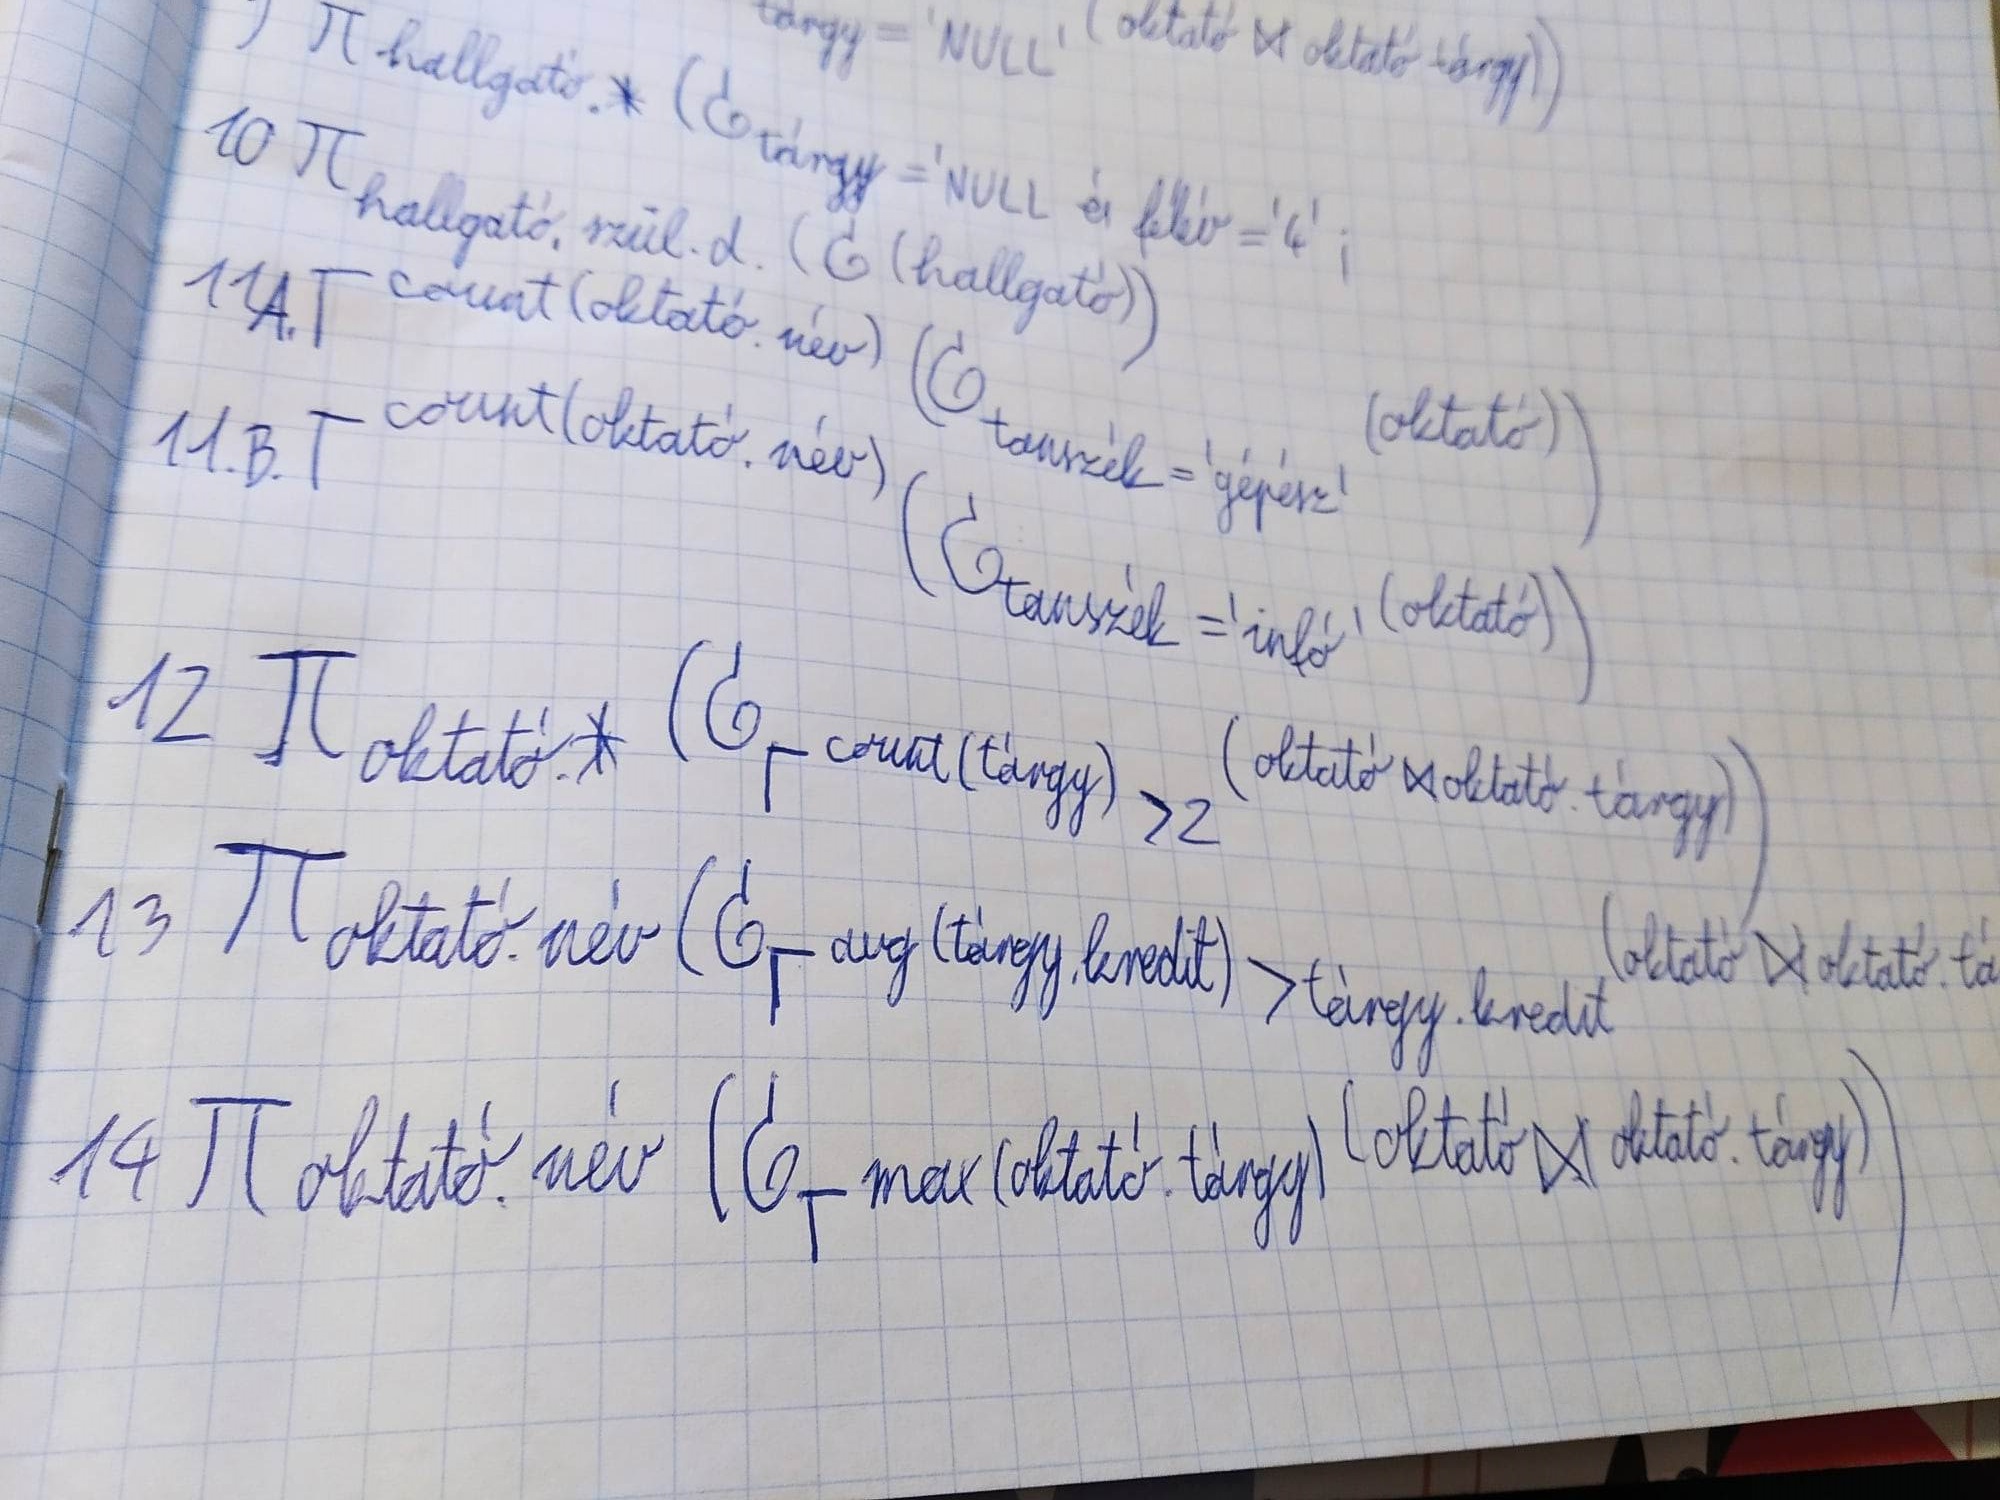 tárgy = 'NULL' (oktató ⋈ oktató tárgy))
9) π hallgató.* (σ tárgy = 'NULL és félév = '4' ;
10 π hallgató. szül. d. (σ (hallgató))
11A. Γ count(oktató.név) (σ tanszék = 'gépész' (oktató))
11.B. Γ count(oktató.név) (σ tanszék = 'infó' (oktató))
12 π oktató.* (σ Γ count(tárgy) >2 (oktató ⋈ oktató.tárgy))
13 π oktató.név (σ Γ avg (tárgy.kredit) > tárgy.kredit (oktató ⋈ oktató.tá
14 π oktató.név (σ Γ max (oktató.tárgy) (oktató ⋈ oktató.tárgy))